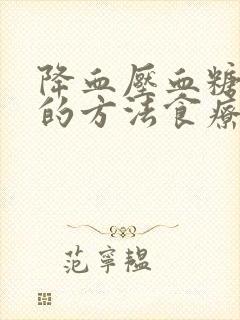 降血壓血糖
的方法食療
范寧韞